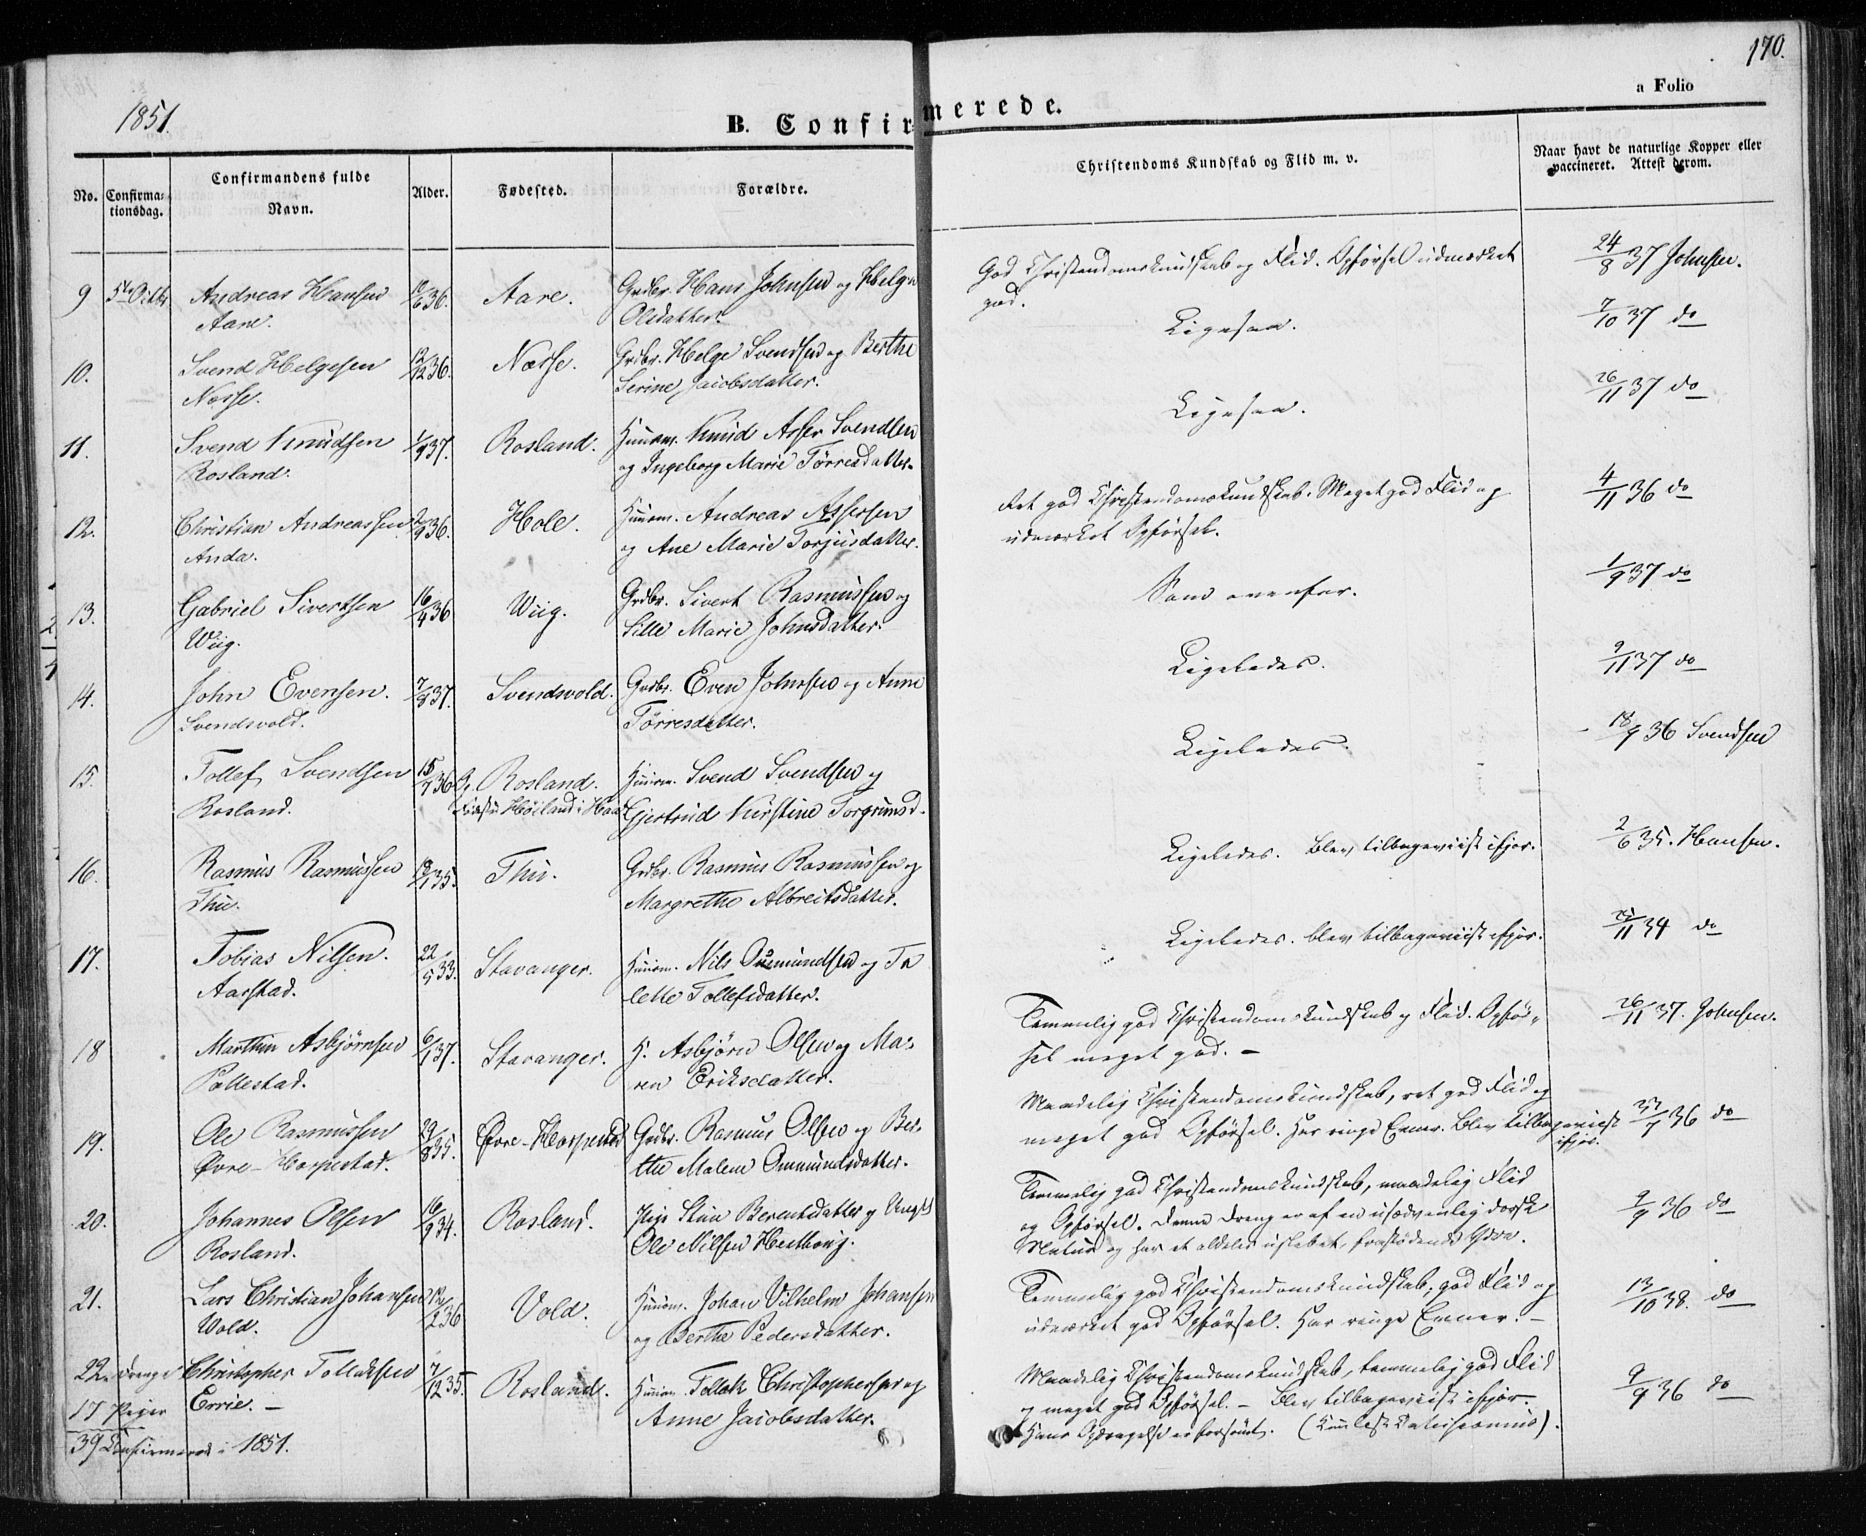 1851.
170.
a Folio
B. Confirmerede.
No.
Confirma-
tionsdag.
Confirmandens fulde
Navn.
Alder.
Fødested.
Forældre.
Christendoms Kundskab og Flid m. v.
Naar havt de naturlige Kopper eller
vaccineret. Attest derom.
9 5te Octbr Andreas Hansen 36. Aare. Grdbr. Hans Johnsen og Helga
Aare. Olsdatter.
God Christendomskundskab og Flid. Opførsel udmærket
god.
24/8 37 Johnsen.
10. Svend Helgesen 12/12 36. Nærse. Grdbr. Helge Svendsen og Berthe
Nærse. Serine Jacobsdatter.
Ligesaa.
7/10 37 do
11. Svend Knudsen 1/9 37. Rosland. Huusm. Knud Asser Svendsen
Rosland. og Ingeborg Marie Tørresdatter.
Ligesaa.
26/11 37 do
12. Christian Andreassen 36. Hole. Huusm. Andreas Assersen
Anda. og Ane Marie Torjusdatter.
Ret god Christendomskundskab. Meget god Flid og
udmærket Opførsel.
4/11 36 do
13. Gabriel Sivertsen 16/4 36 Wiig. Grdbr. Sivert Rasmussen og
Wiig. Sille Marie Johnsdatter.
Som ovenfor.
1/9 37 do
14. John Evensen. 7/8 37. Svendsvold. Grdbr. Even Johnsen og Anne
Svendsvold. Tørresdatter.
Ligeledes.
9/11 37 do
15. Tollef Svendsen 15/ 36 Rosland. Huusm. Svend Svendsen og
Rosland. Høiland i Haa Gjertrud Kirstine Torgrimsd.
Ligeledes.
18/9 36 Svendsen
16. Rasmus Rasmussen 35. Thu. Grdbr. Rasmus Rasmussen og
Thu. Margrethe Albreitsdatter.
Ligeledes. Blev tilbageviist ifjor.
2/6 35. Hansen.
17. Tobias Nilsen. 22/5 33. Stavanger. Huusm. Nils Osmundsen og Ta
Aarstad. lette Tollefsdatter.
Ligeledes. blev tilbageviist ifjor.
/11 34 do
18 Marthin Asbjørnsen 6/1 37. Stavanger. H. Asbjørn Olsen og Ma-
Pollestad. ren Eriksdatter.
Temmelig god Christendomskundskab og Flid. Opfør-
sel meget god. –
26/11 37. Johnsen.
19. Ole Rasmussen /8 35. Øvre-Horpestad Grdbr. Rasmus Olsen og Ber-
Øvre-Horpestad. the Malene Ommundsdatter.
Maadelig Christendomskundskab, ret god Flid og
meget god Opførsel. Har ringe Evner. Blev tilbageviist
ifjor.
/7 36 do
20. Johannes Olsen 16/9 34. Rosland. Pige Stine Berentsdatter og Ungk
Rosland. Ole Nilsen
Temmelig god Christendomskundskab, maadelig Flid
og Opførsel. Denne Dreng er af en usædvanlig dorsk
Natur og har et aldeles uslebet, frastødende Ydre.
9/9 36 do
21. Lars Christian Johansen /2 36 Vold. Huusm. Johan Vilhelm Johansen
Vold. og Berthe Pedersdatter.
Temmelig god Christendomskundskab, god Flid og
udmærket god Opførsel. Har ringe Evner. –
13/10 38. do
22. Drenge Christopher Tollaksen 7/12 35. Rosland. Huusm. Tollak Christophersen og
17 Piger Errie. – Anne Jacobsdatter.
Maadelig Christendomskundskab, temmelig god Flid
og meget god Opførsel. – Blev tilbageviist ifjor –
Hans Opdragelse er forsømt.
9/9 36 do
39 Confirmerede i 1851.